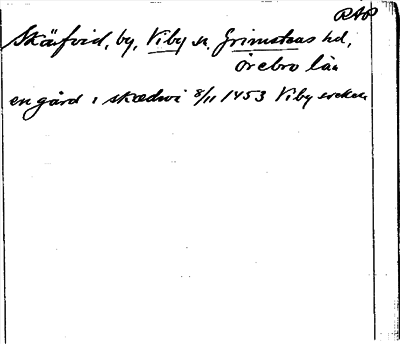 RAP
Skäfvid, by, Viby sn. Grimstens hd,
Örebro län
en gård i skædwi 8/11 1453 Viby socken